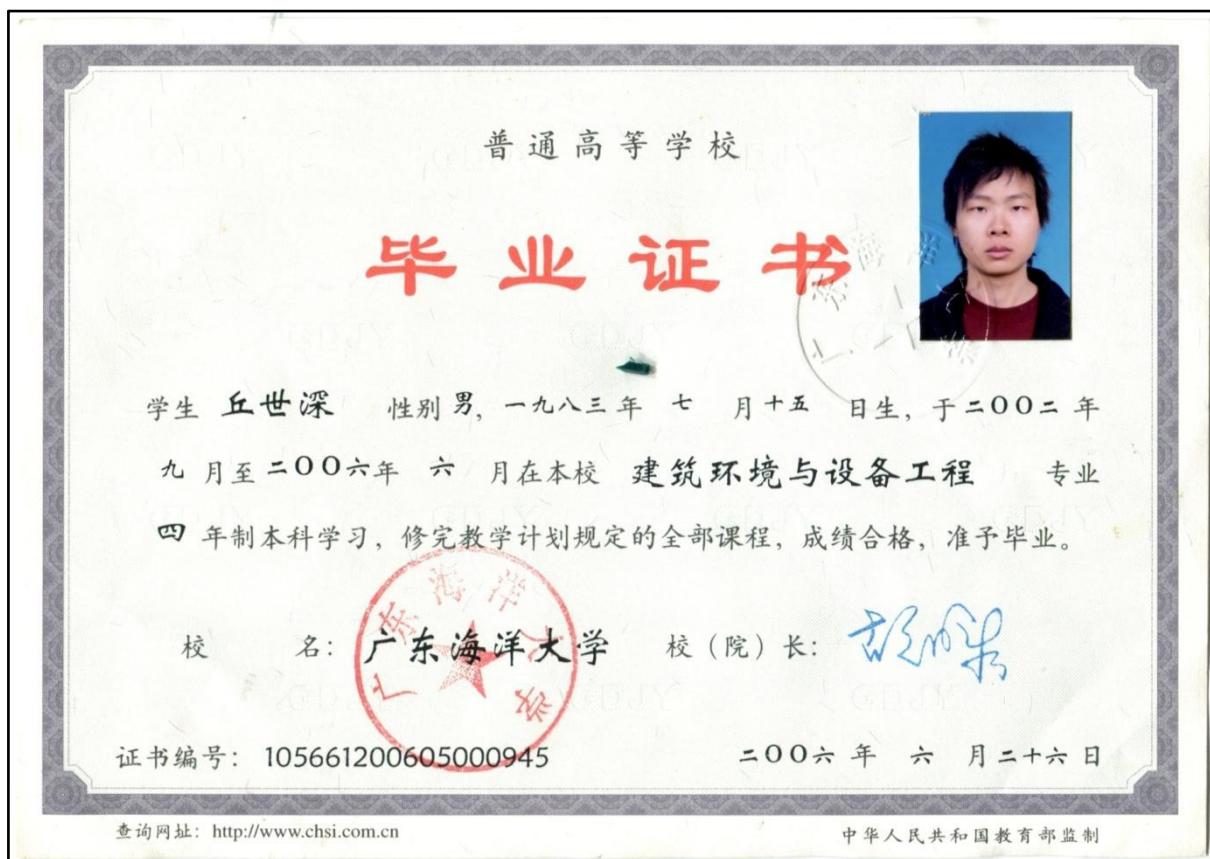 普通高等学校
毕业证书
学生 丘世深 性别 男, 一九八三 年 七 月 十五 日生, 于 二〇〇二 年
九 月至 二〇〇六 年 六 月在本校 建筑环境与设备工程 专业
四 年制本科学习, 修完教学计划规定的全部课程, 成绩合格, 准予毕业。
校 名: 广东海洋大学 校(院)长:
广东海洋大学
证书编号: 105661200605000945 二〇〇六 年 六 月 二十六 日
查询网址: http://www.chsi.com.cn 中华人民共和国教育部监制